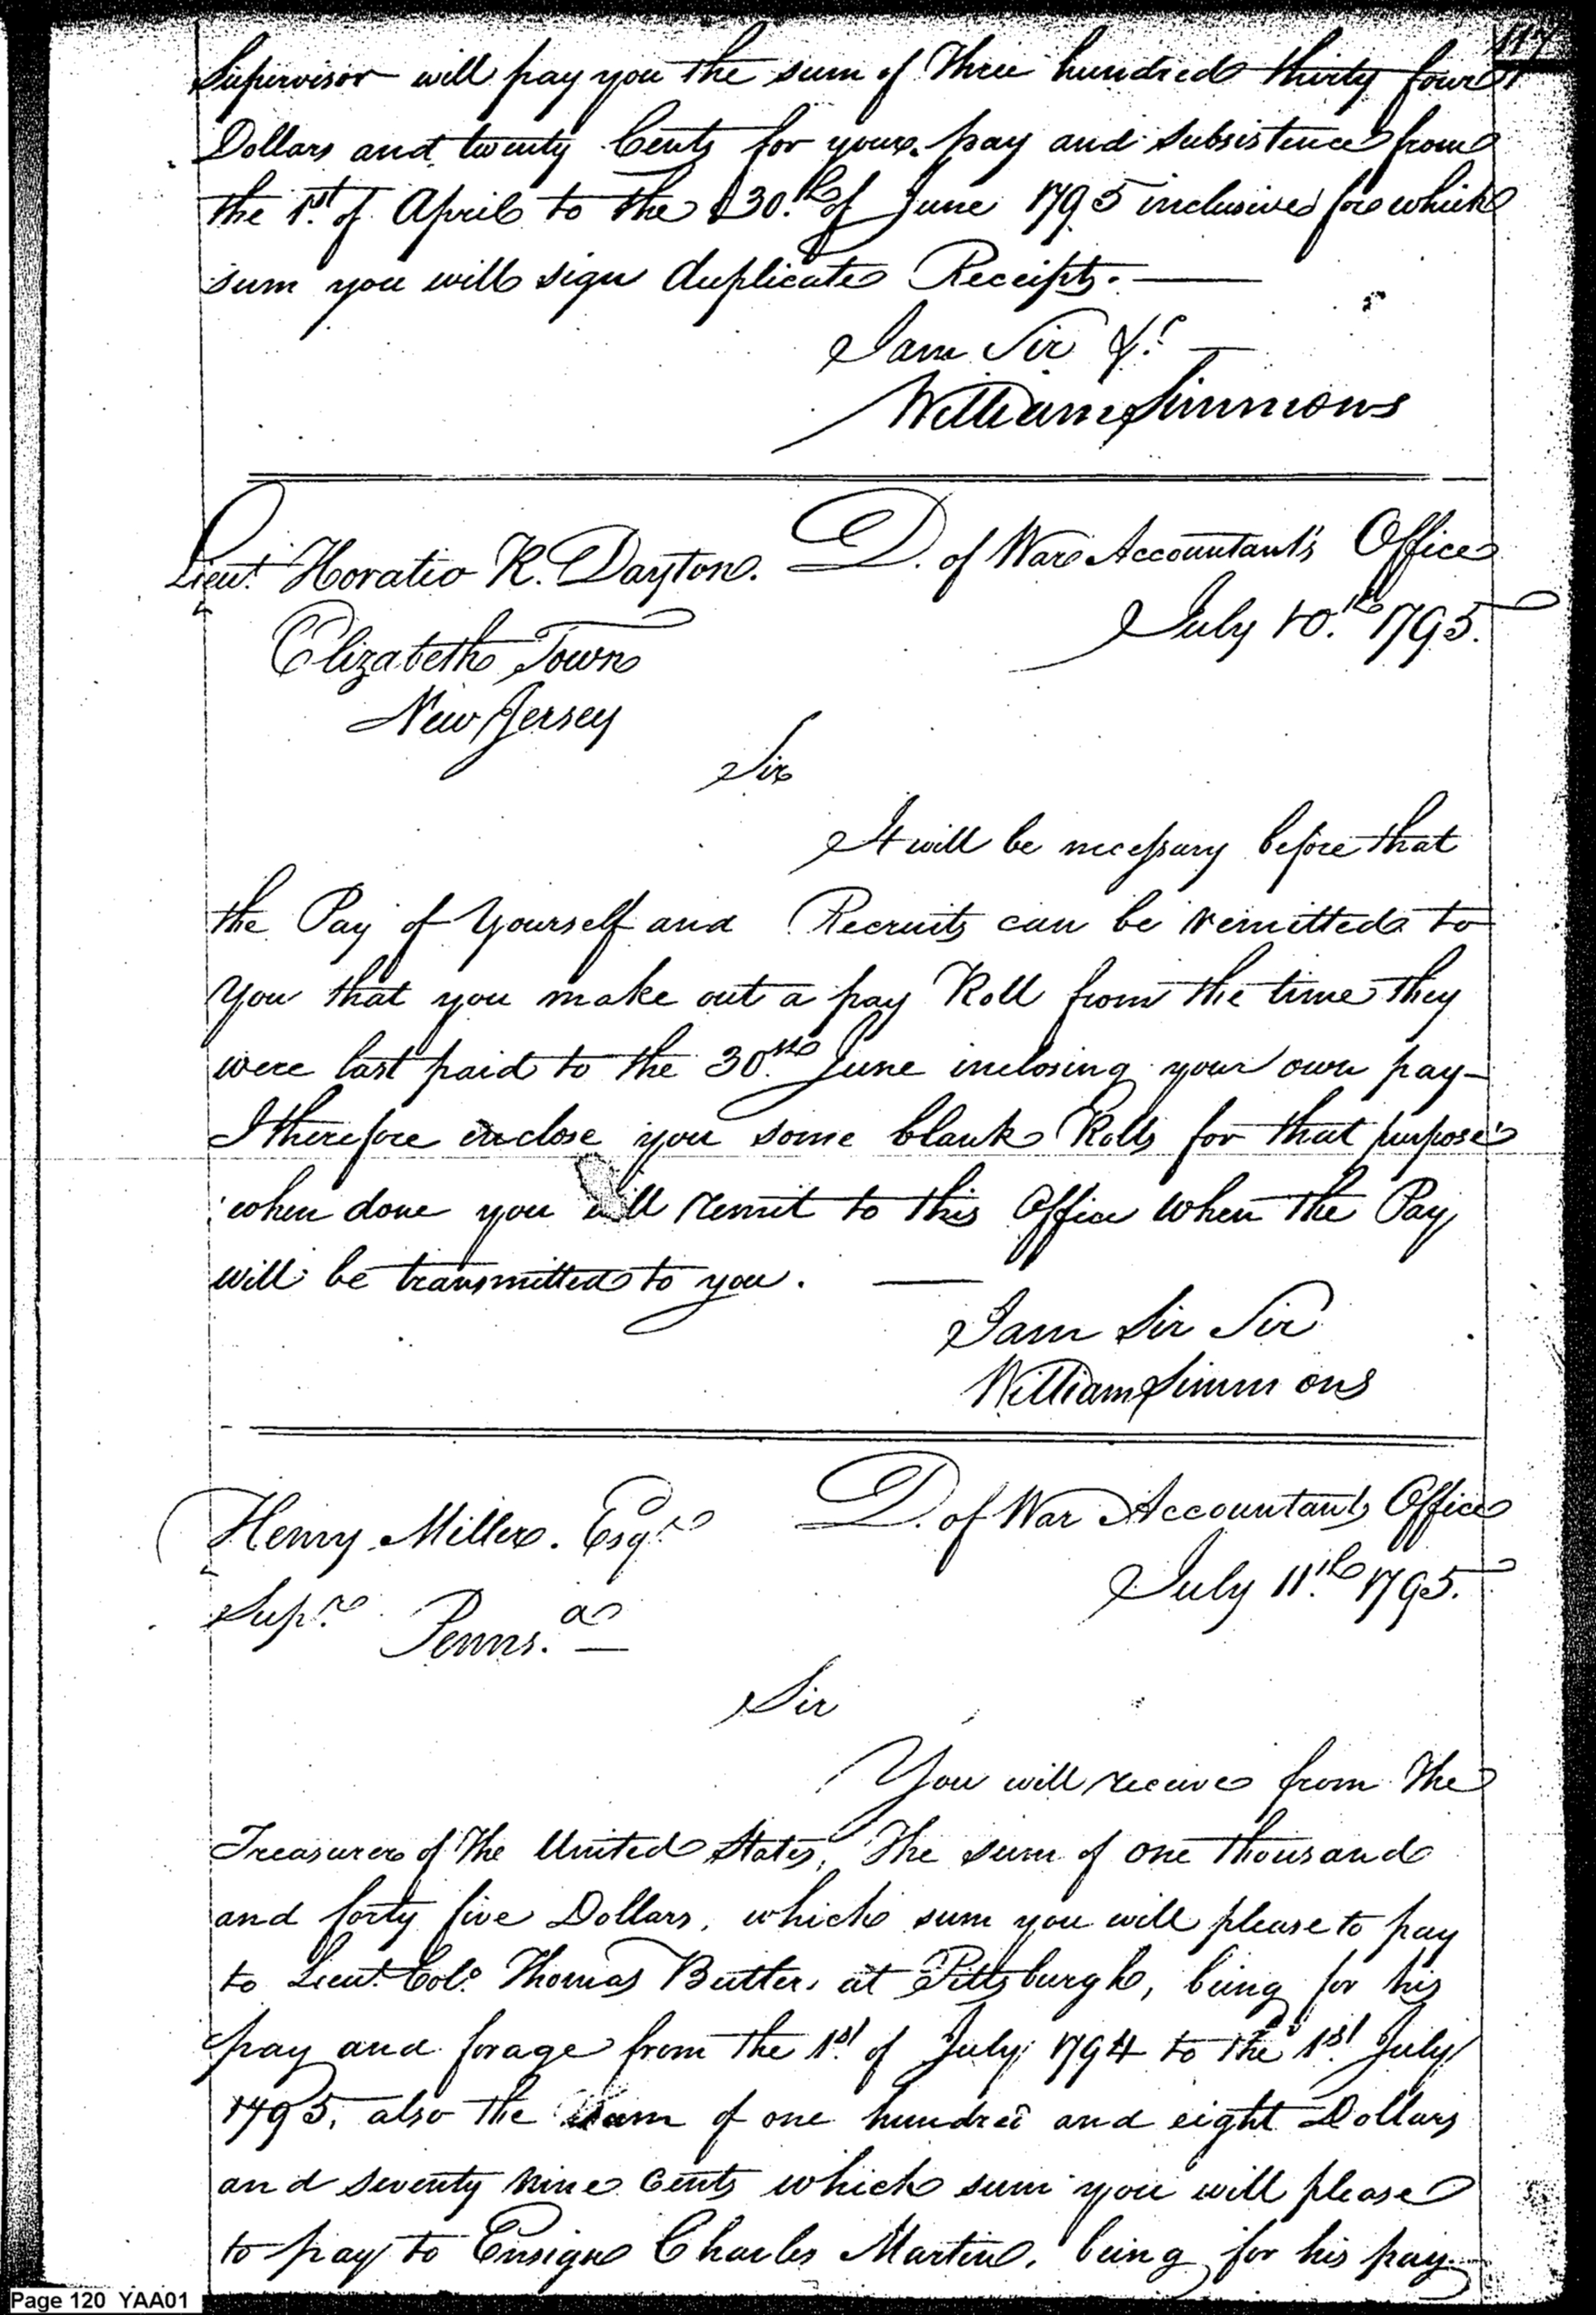 117
Supervisor will pay you the sum of Three hundred thirty four
Dollars and twenty Cents for your pay and subsistence from
the 1st of April to the 30th of June 1795 inclusive for which
sum you will sign duplicate Receipts. —
I am Sir &c —
William Simmons
Lieut. Horatio R. Dayton. D. of War Accountant's Office
Elizabeth Town July 10th 1795.
New Jersey
Sir
It will be necessary before that
the Pay of Yourself and Recruits can be remitted to
You that you make out a pay Roll from the time they
were last paid to the 30th June inclosing your own pay —
I therefore enclose you some blank Rolls for that purpose
when done you will remit to this Office when the Pay
will be transmitted to you. —
I am Sir Sir
William Simmons
Henry Miller. Esqr D. of War Accountants Office
Supr Penns.a — July 11th 1795.
Sir
You will receive from the
Treasurer of The United States, The sum of one thousand
and forty five Dollars, which sum you will please to pay
to Lieut. Colo. Thomas Butler, at Pittsburgh, being for his
pay and forage from the 1st of July 1794 to the 1st July
1795, also the sum of one hundred and eight Dollars
and seventy nine Cents which sum you will please
to pay to Ensign Charles Martin, being for his pay
Page 120 YAA01